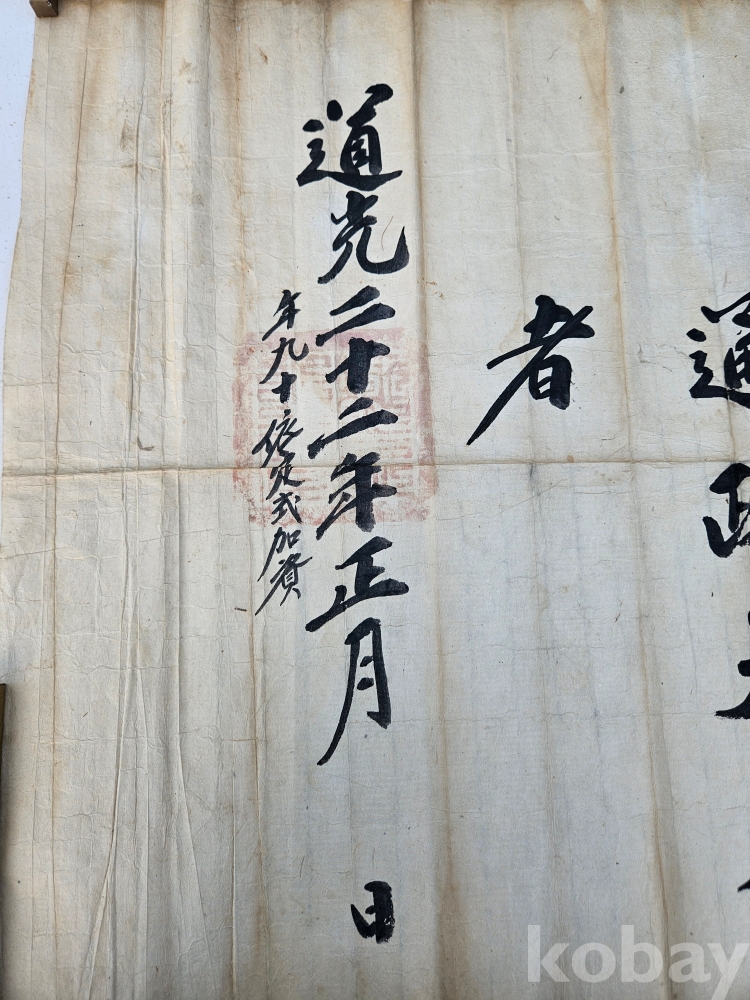 通政大
者
道光二十二年正月 日
年九十依定式加資
kobay